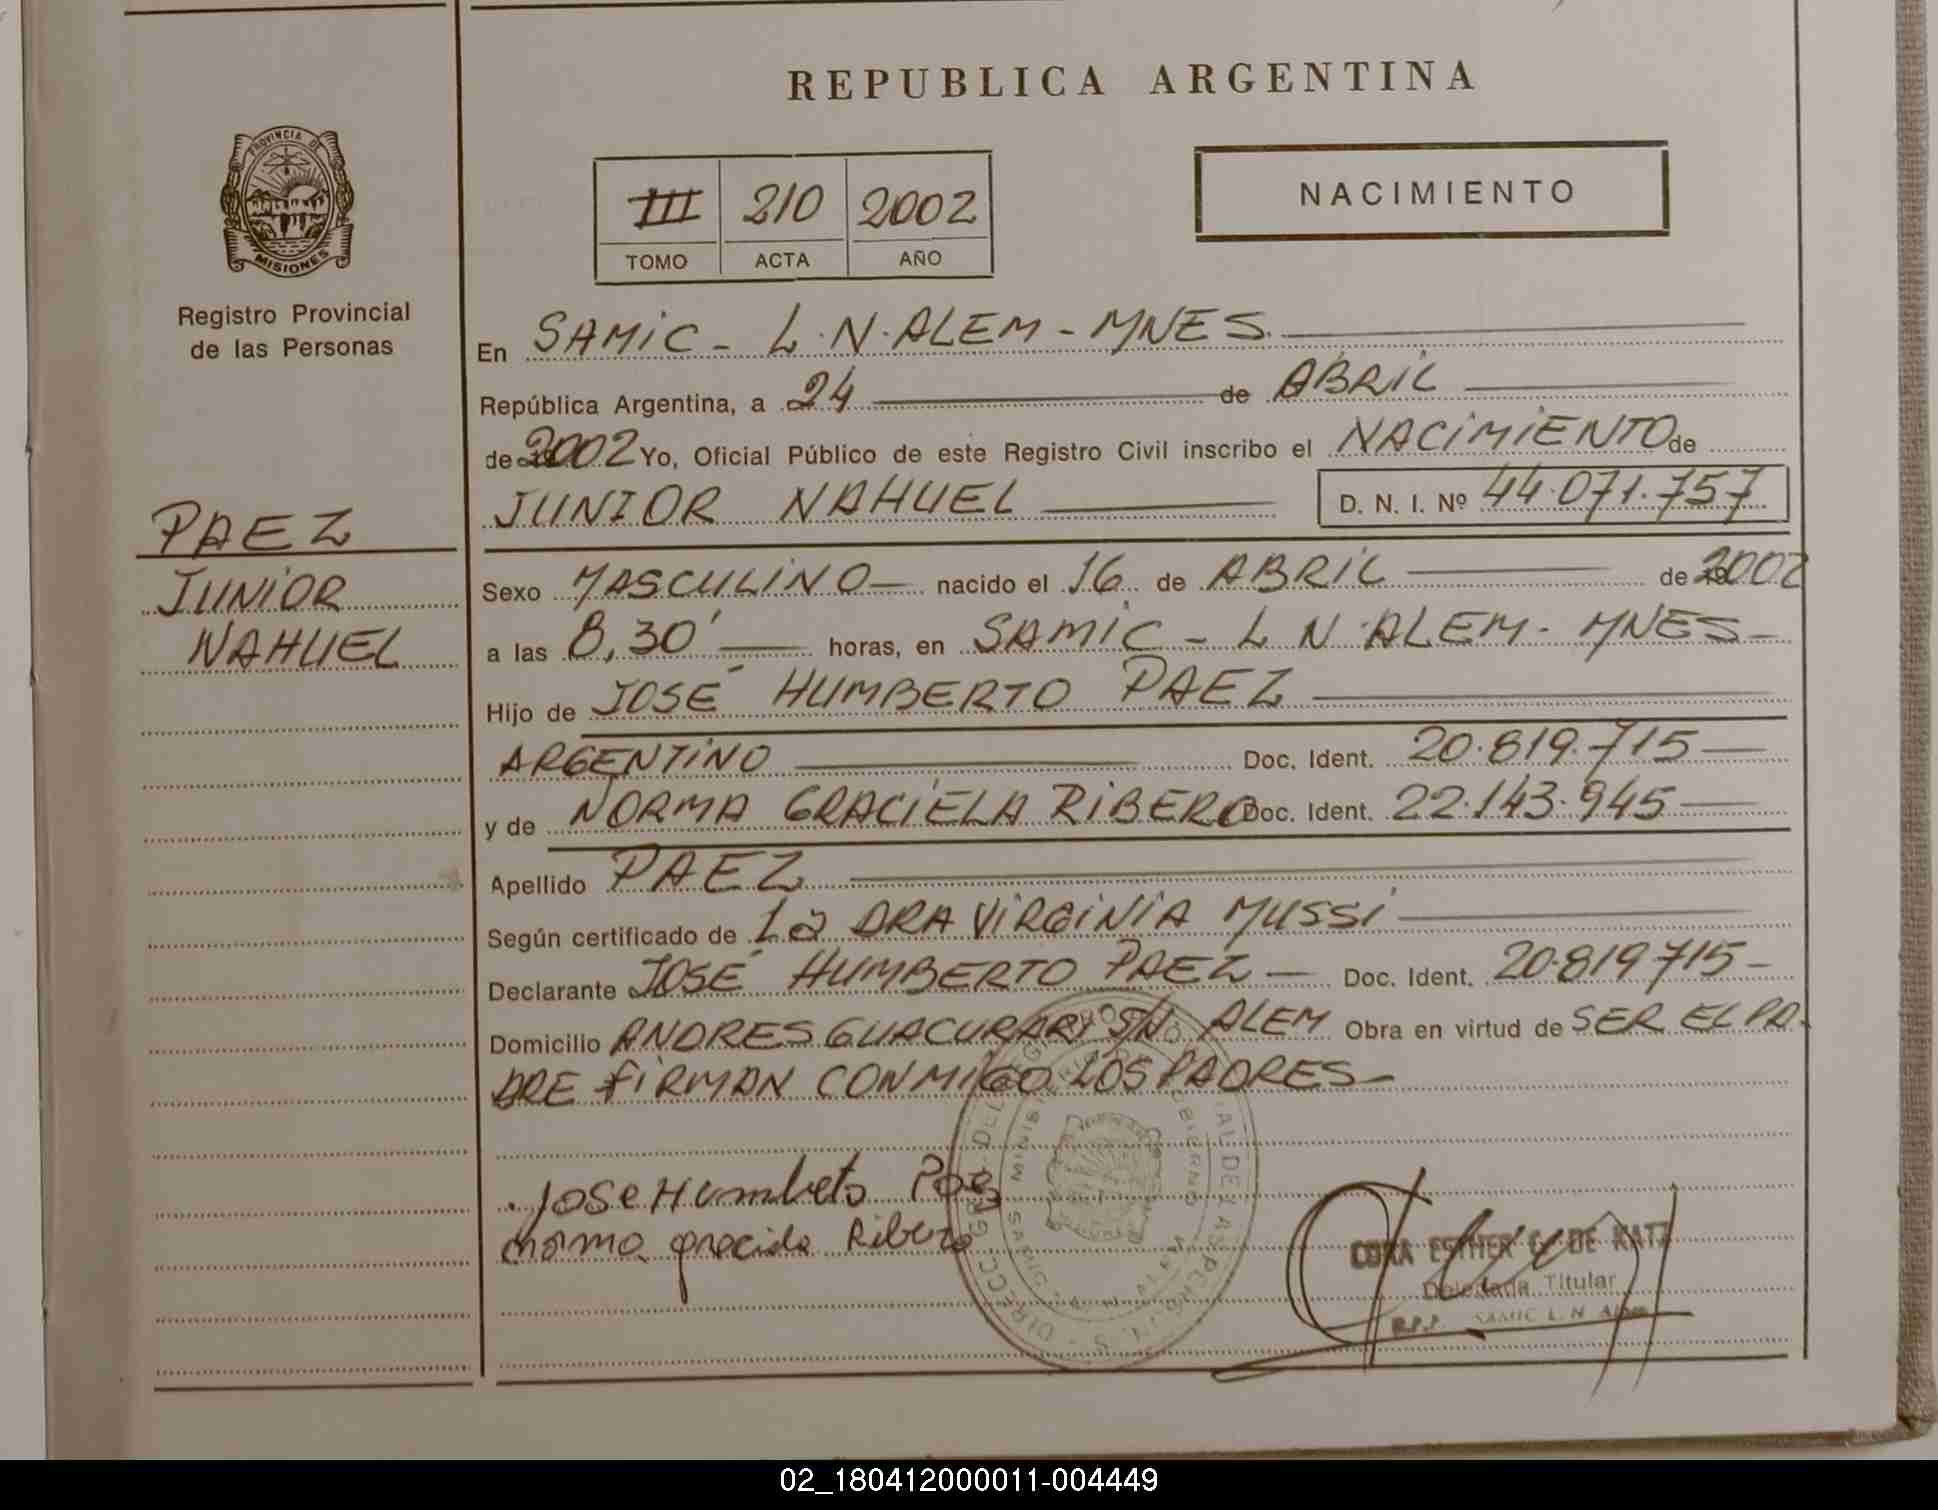 REPUBLICA ARGENTINA
PROVINCIA DE
MISIONES
Registro Provincial
de las Personas
III 210 2002
TOMO ACTA AÑO
NACIMIENTO
En SAMIC - L.N.ALEM - MNES.
República Argentina, a 24 de ABRIL
de 2002 Yo, Oficial Público de este Registro Civil inscribo el NACIMIENTO de
JUNIOR NAHUEL D. N. I. Nº 44.071.757
PAEZ
JUNIOR
NAHUEL
Sexo MASCULINO nacido el 16 de ABRIL de 2002
a las 8,30' horas, en SAMIC - L N.ALEM - MNES -
Hijo de JOSÉ HUMBERTO PAEZ
ARGENTINO Doc. Ident. 20.819.715
y de NORMA GRACIELA RIBERO Doc. Ident. 22.143.945
Apellido PAEZ
Según certificado de La DRA VIRGINIA MUSSI
Declarante JOSÉ HUMBERTO PAEZ - Doc. Ident. 20.819 715 -
Domicilio ANDRES GUACURARI S/N ALEM Obra en virtud de SER EL PA
DRE FIRMAN CONMIGO LOS PADRES -
Jose Humberto Paez
norma graciela Ribero
ESTHER DE KATZ
Delegada Titular
R.P.P. SAMIC L. N. Alem
02_180412000011-004449